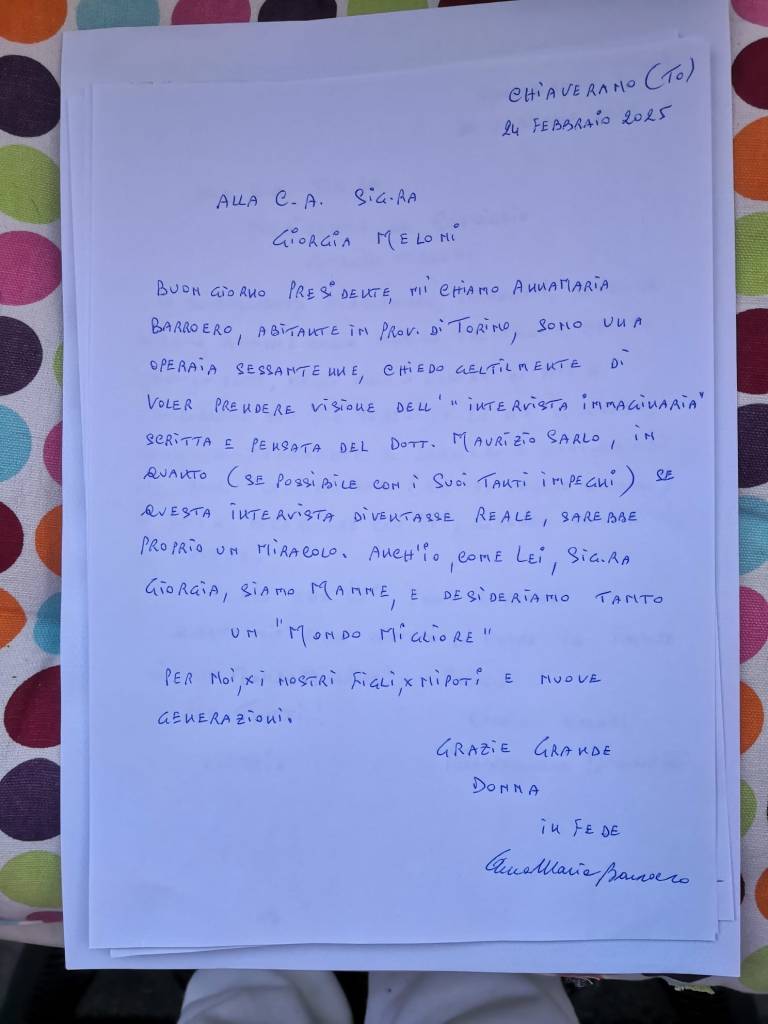 CHIAVERANO (TO)
24 FEBBRAIO 2025
ALLA C.A. SIG.RA
GIORGIA MELONI
BUON GIORNO PRESIDENTE, MI CHIAMO ANNAMARIA
BARROERO, ABITANTE IN PROV. DI TORINO, SONO UNA
OPERAIA SESSANTENNE, CHIEDO GELTILMENTE DI
VOLER PRENDERE VISIONE DELL'"INTERVISTA IMMAGINARIA"
SCRITTA E PENSATA DEL DOTT. MAURIZIO SARLO, IN
QUANTO (SE POSSIBILE CON I SUOI TANTI IMPEGNI) SE
QUESTA INTERVISTA DIVENTASSE REALE, SAREBBE
PROPRIO UN MIRACOLO. ANCH'IO, COME LEI, SIG.RA
GIORGIA, SIAMO MAMME, E DESIDERIAMO TANTO
UN "MONDO MIGLIORE"
PER NOI, X I NOSTRI FIGLI, X NIPOTI E NUOVE
GENERAZIONI.
GRAZIE GRANDE
DONNA
IN FEDE
AnnaMaria Barroero